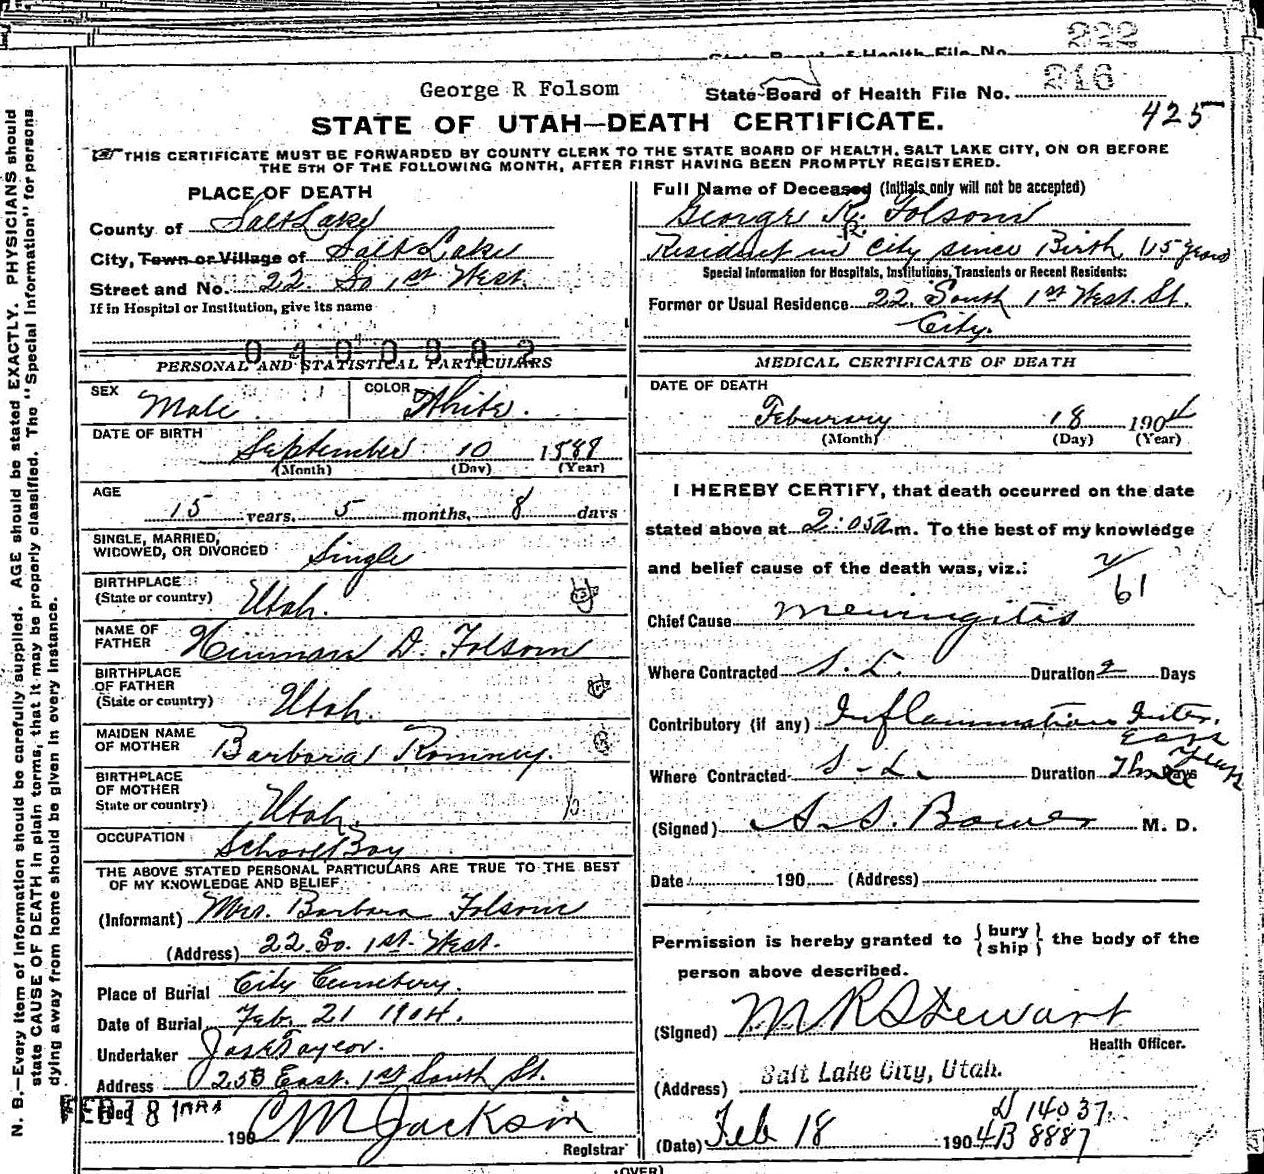 State Board of Health File No. 222
George R Folsom
State Board of Health File No. 216
STATE OF UTAH—DEATH CERTIFICATE.
425
THIS CERTIFICATE MUST BE FORWARDED BY COUNTY CLERK TO THE STATE BOARD OF HEALTH, SALT LAKE CITY, ON OR BEFORE
THE 5TH OF THE FOLLOWING MONTH, AFTER FIRST HAVING BEEN PROMPTLY REGISTERED.
PLACE OF DEATH
County of Salt Lake
City, Town or Village of Salt Lake
Street and No. 22. So 1st West.
If in Hospital or Institution, give its name
0400382
PERSONAL AND STATISTICAL PARTICULARS
SEX Male. COLOR White.
DATE OF BIRTH
September 10 1588
(Month) (Day) (Year)
AGE
15 years, 5 months, 8 days
SINGLE, MARRIED,
WIDOWED, OR DIVORCED Single
BIRTHPLACE
(State or country) Utah.
NAME OF
FATHER Hinman D. Folsom
BIRTHPLACE
OF FATHER
(State or country) Utah.
MAIDEN NAME
OF MOTHER Barbara Romney.
BIRTHPLACE
OF MOTHER
State or country) Utah.
OCCUPATION School Boy
THE ABOVE STATED PERSONAL PARTICULARS ARE TRUE TO THE BEST
OF MY KNOWLEDGE AND BELIEF
(Informant) Mrs. Barbara Folsom
(Address) 22. So. 1st. West.
Place of Burial City Cemetery.
Date of Burial Feb. 21 1904.
Undertaker Jos E Taylor.
Address 253 East. 1st South St.
Filed FEB 18 1904
190 C M Jackson
Registrar
Full Name of Deceased (Initials only will not be accepted)
George R. Folsom
R
Resident in City since Birth (15 years
Special Information for Hospitals, Institutions, Transients or Recent Residents:
Former or Usual Residence 22. South 1st West. St.
City.
MEDICAL CERTIFICATE OF DEATH
DATE OF DEATH
Feburary 18 1904
(Month) (Day) (Year)
I HEREBY CERTIFY, that death occurred on the date
stated above at 2:05 a m. To the best of my knowledge
and belief cause of the death was, viz.:
61
Chief Cause Meningitis
Where Contracted S. L. Duration 2 Days
Contributory (if any) Inflammation Inter.
Ears
Where Contracted S-L. Duration Three Days Years
(Signed) S. S. Bower M. D.
Date 190 (Address)
Permission is hereby granted to { bury ship } the body of the
person above described.
(Signed) M R Stewart
Health Officer.
(Address) Salt Lake City, Utah.
D 14037.
(Date) Feb 18 1904 B 8887
(OVER)
N. B.—Every item of information should be carefully supplied. AGE should be stated EXACTLY. PHYSICIANS should
state CAUSE OF DEATH in plain terms, that it may be properly classified. The "Special Information" for persons
dying away from home should be given in every instance.